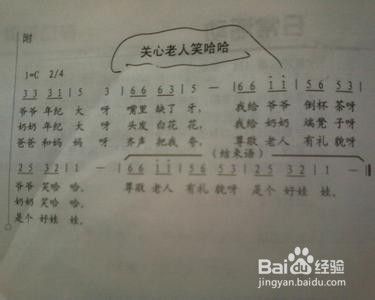 附
关心老人笑哈哈
1=C 2/4
3 3 3 1 | 5 3 | 6 6 6 3 | 5 — | 6 6 i i | 5 6 5 3 |
爷爷 年纪 大 呀 嘴里 缺了 牙, 我给 爷爷 倒杯 茶呀
奶奶 年纪 大 呀 头发 白花 花, 我给 奶奶 端凳 子呀
爸爸 和妈 妈 呀 齐声 把我 夸, 尊敬 老人 有礼 貌呀
(结束语)
2 5 3 2 | 1 — | 6 6 i i | 5 6 5 3 | 2 5 3 2 | 1 — ‖
爷爷 笑哈 哈。 尊敬 老人 有礼 貌呀 是个 好娃 娃。
奶奶 笑哈 哈。
是个 好娃 娃。
Baidu 经验
jingyan.baidu.com